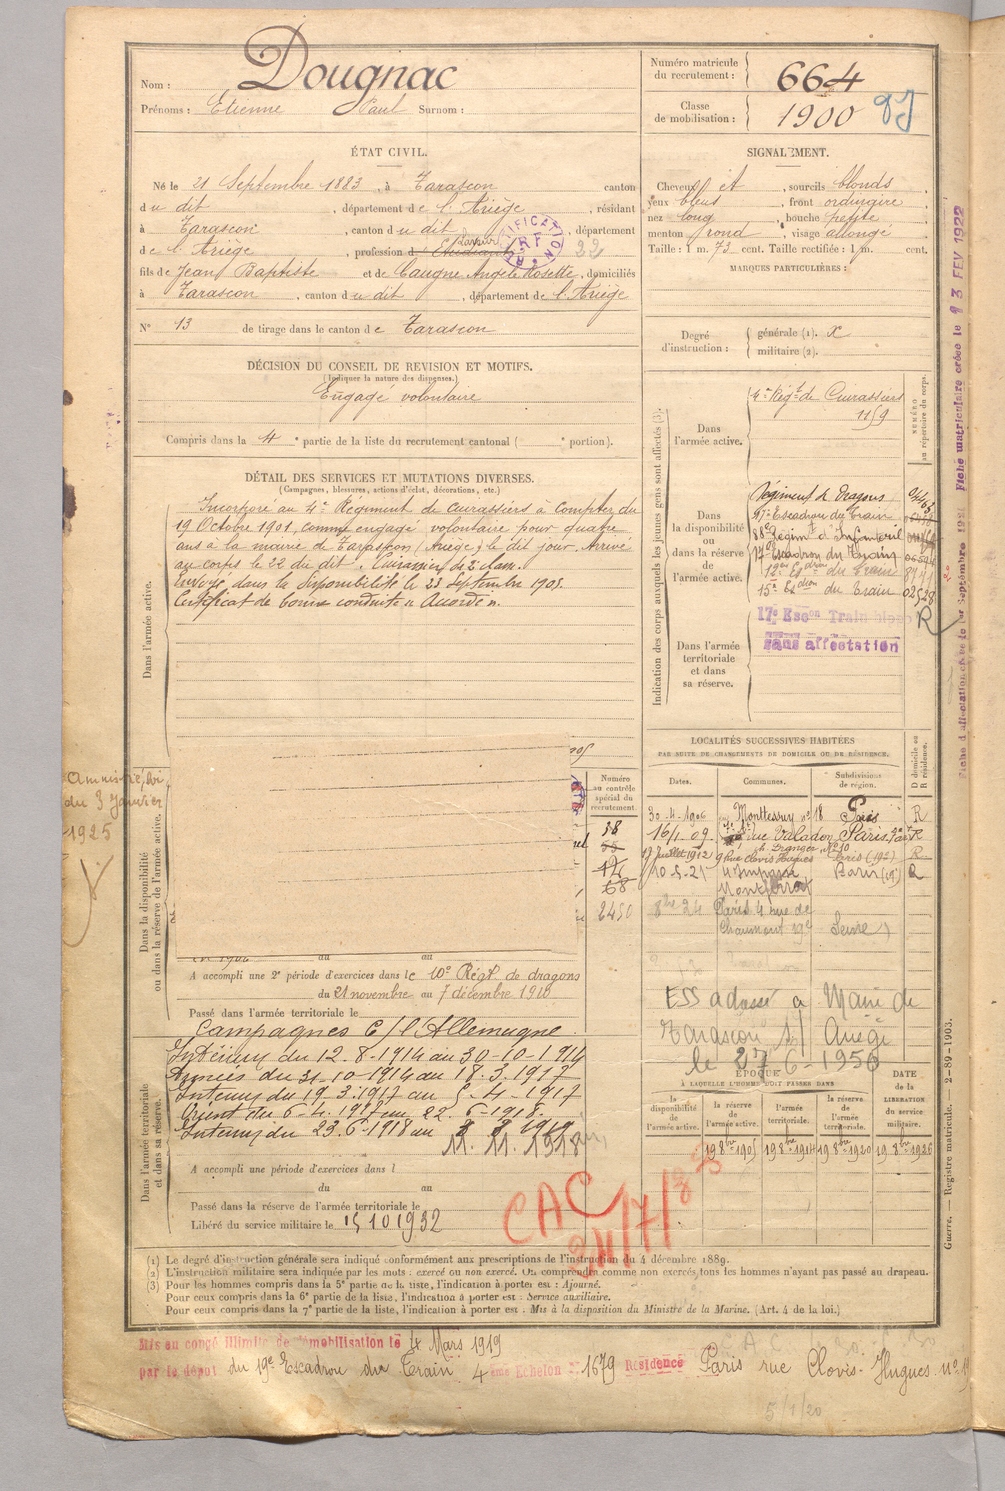 Nom : Dougnac
Prénoms : Etienne Paul Surnom :
Numéro matricule du recrutement : 664
Classe de mobilisation : 1900
ÉTAT CIVIL.
Né le 21 Septembre 1883, à Tarascon canton
du dit, département de l'Ariège, résidant
à Tarascon, canton du dit, département
de l'Ariège, profession d' Etudiant 22
fils de Jean Baptiste et de Caugne Angèle Rosette, domiciliés
à Tarascon, canton du dit, département de l'Ariège
N° 13 de tirage dans le canton de Tarascon
SIGNALEMENT.
Cheveux et, sourcils blonds,
yeux bleus, front ordinaire
nez long, bouche petite
menton rond, visage allongé
Taille : 1 m. 73 cent. Taille rectifiée : 1 m. cent.
MARQUES PARTICULIÈRES :
Degré d'instruction :
générale (1). x
militaire (2).
DÉCISION DU CONSEIL DE REVISION ET MOTIFS.
(Indiquer la nature des dispenses.)
Engagé volontaire
Compris dans la 4e partie de la liste du recrutement cantonal ( e portion).
DÉTAIL DES SERVICES ET MUTATIONS DIVERSES.
(Campagnes, blessures, actions d'éclat, décorations, etc.)
Dans l'armée active.
Incorporé au 4e Régiment de Cuirassiers à compter du
19 Octobre 1901, comme engagé volontaire pour quatre
ans à la mairie de Tarascon (Ariège), le dit jour. Arrivé
au corps le 22 du dit. Cuirassier de 2e classe.
Envoyé dans la disponibilité le 23 Septembre 1905.
Certificat de bonne conduite "Accordé".
Indication des corps auxquels les jeunes gens sont affectés (3).
NUMÉRO au répertoire du corps.
Dans l'armée active.
4e Régt de Cuirassiers
1159
Dans la disponibilité ou dans la réserve de l'armée active.
Régiment de Dragons
Escadron du Train
88e Régimt d'Infanterie
17e Escadron du Train
Escdron du Train
15e Escdron du Train 02528
17e Escon Train
sans affectation
R
Dans l'armée territoriale et dans sa réserve.
Amnistié, loi
du 3 Janvier
1925
Dans la disponibilité ou dans la réserve de l'armée active.
Numéro au contrôle spécial du recrutement.
58
68
2450
LOCALITÉS SUCCESSIVES HABITÉES
PAR SUITE DE CHANGEMENTS DE DOMICILE OU DE RÉSIDENCE.
Dates. Communes. Subdivisions de région. D domicile ou R résidence.
30-4-1906 Monttessuy n° 18 Paris R
16/1-09 rue Valadon Paris R
17 Juillet 1912 9 rue Clovis Hugues Paris (19e) R
10-5-21 4 Impasse Montferrat Paris (19e) R
8bre 24 Paris 4 rue de Chaumont 19e Seine
ESS adressé à Mairie de
Tarascon s/ Ariège
le 27-6-1956
A accompli une 2e période d'exercices dans le 10e Régt de dragons
du 21 novembre au 7 décembre 1910
Passé dans l'armée territoriale le
Campagnes C/ l'Allemagne
Dans l'armée territoriale et dans sa réserve.
Intérieur du 12-8-1914 au 30-10-1914
Armées du 31-10-1914 au 18-3-1917
Intérieur du 19-3-1917 au 5-4-1917
Orient du 6-4-1917 au 22-6-1918.
Intérieur du 23-6-1918 au
11.11.1918
A accompli une période d'exercices dans l
du au
Passé dans la réserve de l'armée territoriale le
Libéré du service militaire le 15 10 1932
ÉPOQUE
À LAQUELLE L'HOMME DOIT PASSER DANS
la disponibilité de l'armée active.
la réserve de l'armée active.
l'armée territoriale.
la réserve de l'armée territoriale.
DATE de la LIBÉRATION du service militaire.
19 8bre 1905 19 8bre 1914 19 8bre 1920 19 8bre 1926
CAC
(1) Le degré d'instruction générale sera indiqué conformément aux prescriptions de l'instruction du 4 décembre 1889.
(2) L'instruction militaire sera indiquée par les mots : exercé ou non exercé. On comprendra comme non exercés, tous les hommes n'ayant pas passé au drapeau.
(3) Pour les hommes compris dans la 5e partie de la liste, l'indication à porter est : Ajourné.
Pour ceux compris dans la 6e partie de la liste, l'indication à porter est : Service auxiliaire.
Pour ceux compris dans la 7e partie de la liste, l'indication à porter est : Mis à la disposition du Ministre de la Marine. (Art. 4 de la loi.)
Mis en congé illimité de démobilisation le 4 Mars 1919
par le dépôt du 19e Escadron du Train 4ème Echelon N° 1679 Résidence Paris rue Clovis-Hugues n° 9
5/1/20
Guerre. — Registre matricule. — 2-89-1903.
Fiche matriculaire créée le 23 FEV 1922
Fiche d'affectation créée le 1er Septembre 1921